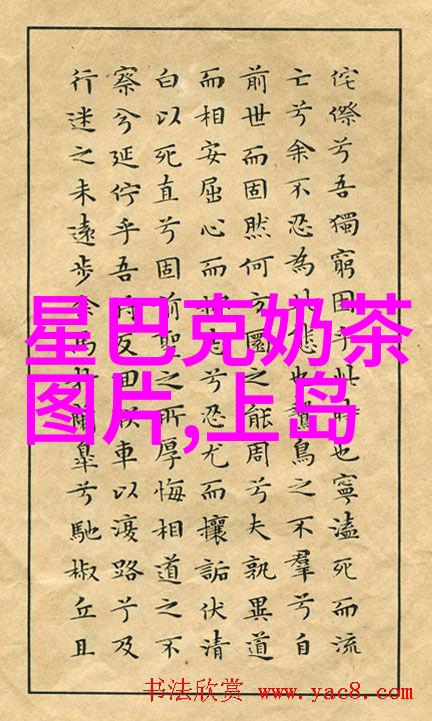 侘傺兮吾獨窮困乎此時也寧溘死而流
亡兮余不忍為此態也鷙鳥之不羣兮自
前世而固然何方圜之能周兮夫孰異道
而相安屈心而抑志兮忍尤而攘詬伏清
白以死直兮固前聖之所厚悔相道之不
察兮延佇乎吾將反回朕車以復路兮及
行迷之未遠步余馬於蘭皋兮馳椒丘且
星巴克奶茶
图片,上岛
书法欣赏 www.yac8.com